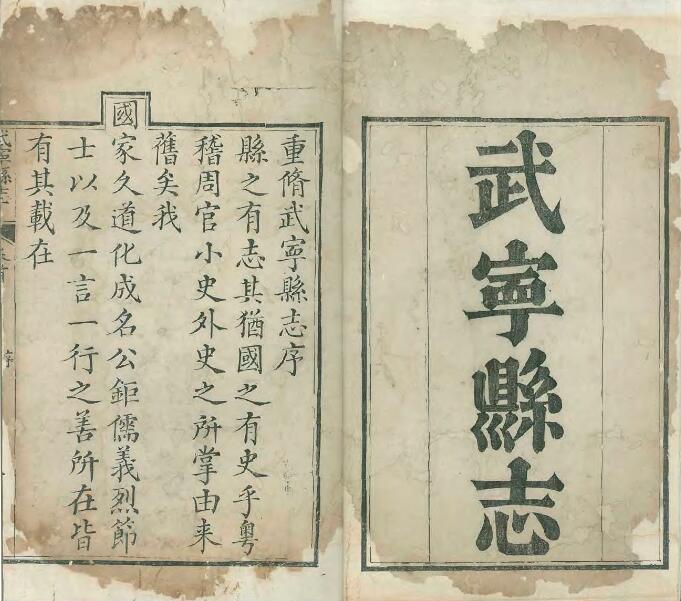 武寧縣志
重脩武寧縣志序
縣之有志其猶國之有史乎粵
稽周官小史外史之所掌由来
舊矣我
國家久道化成名公鉅儒義烈節
士以及一言一行之善所在皆
有其載在
武寧縣志
序